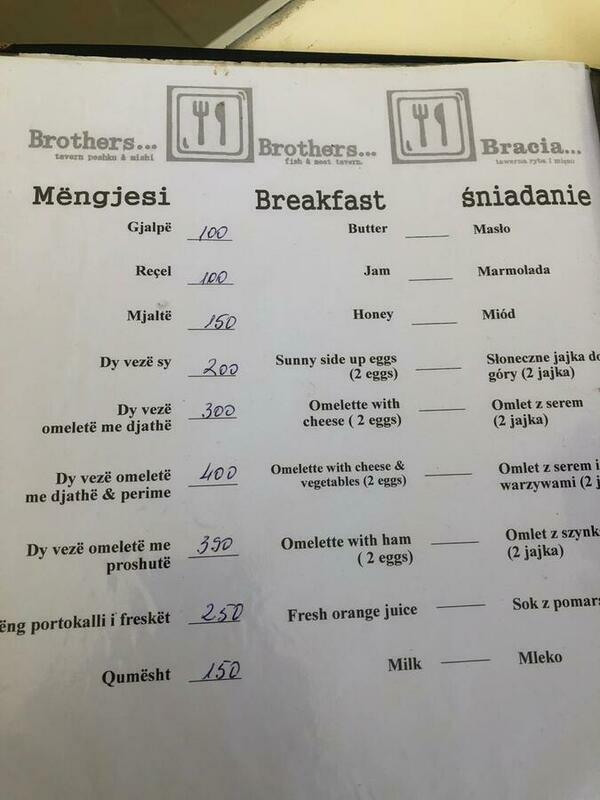 Brothers... Brothers... Bracia...
tavern peshku & mishi fish & meet tavern. tawerna ryba i mięso
Mëngjesi Breakfast śniadanie
Gjalpë 100 Butter Masło
Reçel 100 Jam Marmolada
Mjaltë 150 Honey Miód
Dy vezë sy 200 Sunny side up eggs Słoneczne jajka do
(2 eggs) góry (2 jajka)
Dy vezë 300 Omelette with Omlet z serem
omeletë me djathë cheese ( 2 eggs) (2 jajka)
Dy vezë omeletë 400 Omelette with cheese & Omlet z serem i
me djathë & perime vegetables (2 eggs) warzywami (2 j
Dy vezë omeletë me 390 Omelette with ham Omlet z szynk
proshutë ( 2 eggs) (2 jajka)
ëng portokalli i freskët 250 Fresh orange juice Sok z pomar
Qumësht 150 Milk Mleko